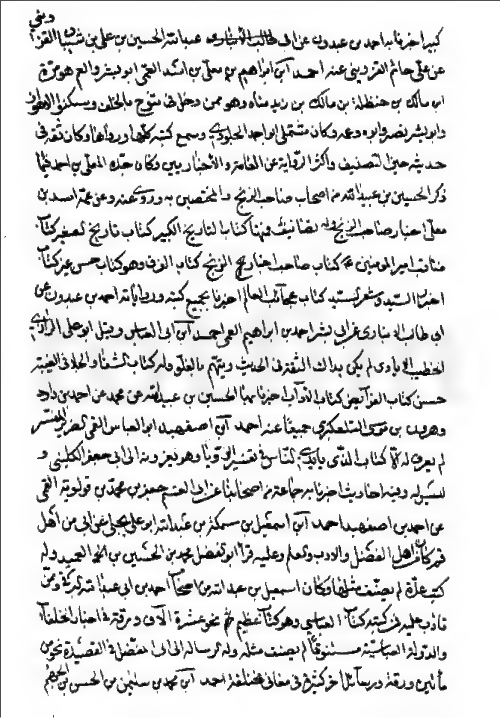 وبنى
كبيرا اخبرنا به احمد بن عبدون عن ابى طالب الانبارى عبيد الله الحسين بن على بن شيبان القزو
عن على حاتم القزوينى عنه احمد ابن ابراهيم بن معلى بن اسد العمى ابو بشر والعم هو مرة
ابن مالك بن حنظلة بن مالك بن زيد مناة وهو ممن دخل فى تنوخ بالحلف وسكنوا الاهواز
وابو بشر بصرى وابوه وعمه وكان مستملى ابى احمد الجلودى وسمع كتبه كلها ورواها وكان ثقة فى
حديثه حسن التصنيف واكثر الرواية عن العامة والاخباريين وكان جده المعلى بن اسد فيما
ذكر الحسين بن عبيد الله من اصحاب صاحب الزنج والمختصين به وروى عنه وعن عمه اسد بن
معلى اخبار صاحب الزنج وله تصانيف فمنها كتاب التاريخ الكبير كتاب تاريخ الصغير كتاب
مناقب امير المؤمنين كتاب صاحب اخبار الزنج كتاب الفرق وهو كتاب حسن غريب كتاب
اخبار السيد وشعر السيد كتاب عجائب العالم اخبرنا بجميع كتبه ورواياته احمد بن عبدون عن
ابى طالب الانبارى عن ابى بشر احمد بن ابراهيم العمى احمد ابن ابى العباس وقيل ابو على الرازى
الخطيب الايادى لم يكن بذاك الثقة فى الحديث ويتهم بالغلو وله كتاب الشفاء والجلاء فى الغيبة
حسن كتاب الفرائض كتاب الآداب اخبرنا بهما الحسين بن عبيد الله عن محمد بن احمد بن داود
وهارون بن موسى التلعكبرى جميعا عنه احمد ابن اصفهبد ابو العباس القمى الضرير المفسر
لم يعرف له الا كتاب الذى بايدى الناس فى تفسير الرؤيا وهو يعزونه الى ابى جعفر الكلينى و
ليس له وفيه احاديث اخبرنا به جماعة من اصحابنا عن ابى القسم جعفر بن محمد بن قولويه القمى
عن احمد بن اصفهبد احمد ابن اسمعيل بن سمكة بن عبد الله ابو على بجلى عربى من اهل
قم كان من اهل الفضل والادب والعلم وعليه قرا ابو الفضل محمد بن الحسين بن العميد وله
كتب عدة لم يصنف مثلها وكان اسمعيل بن عبد الله من اصحاب احمد بن ابى عبد الله البرقى وممن
تادب عليه فمن كتبه كتاب العباسى وهو كتاب عظيم نحو عشرة الاف ورقة فى اخبار الخلفاء
والدولة العباسية مستوفى لم يصنف مثله وله رسالة الى ابى الفضل فى القصيدة نحو من
مائتين ورقة ورسائل اخر كثيرة فى معانى مختلفة احمد ابن محمد بن سليمن بن الحسن بن الجهم